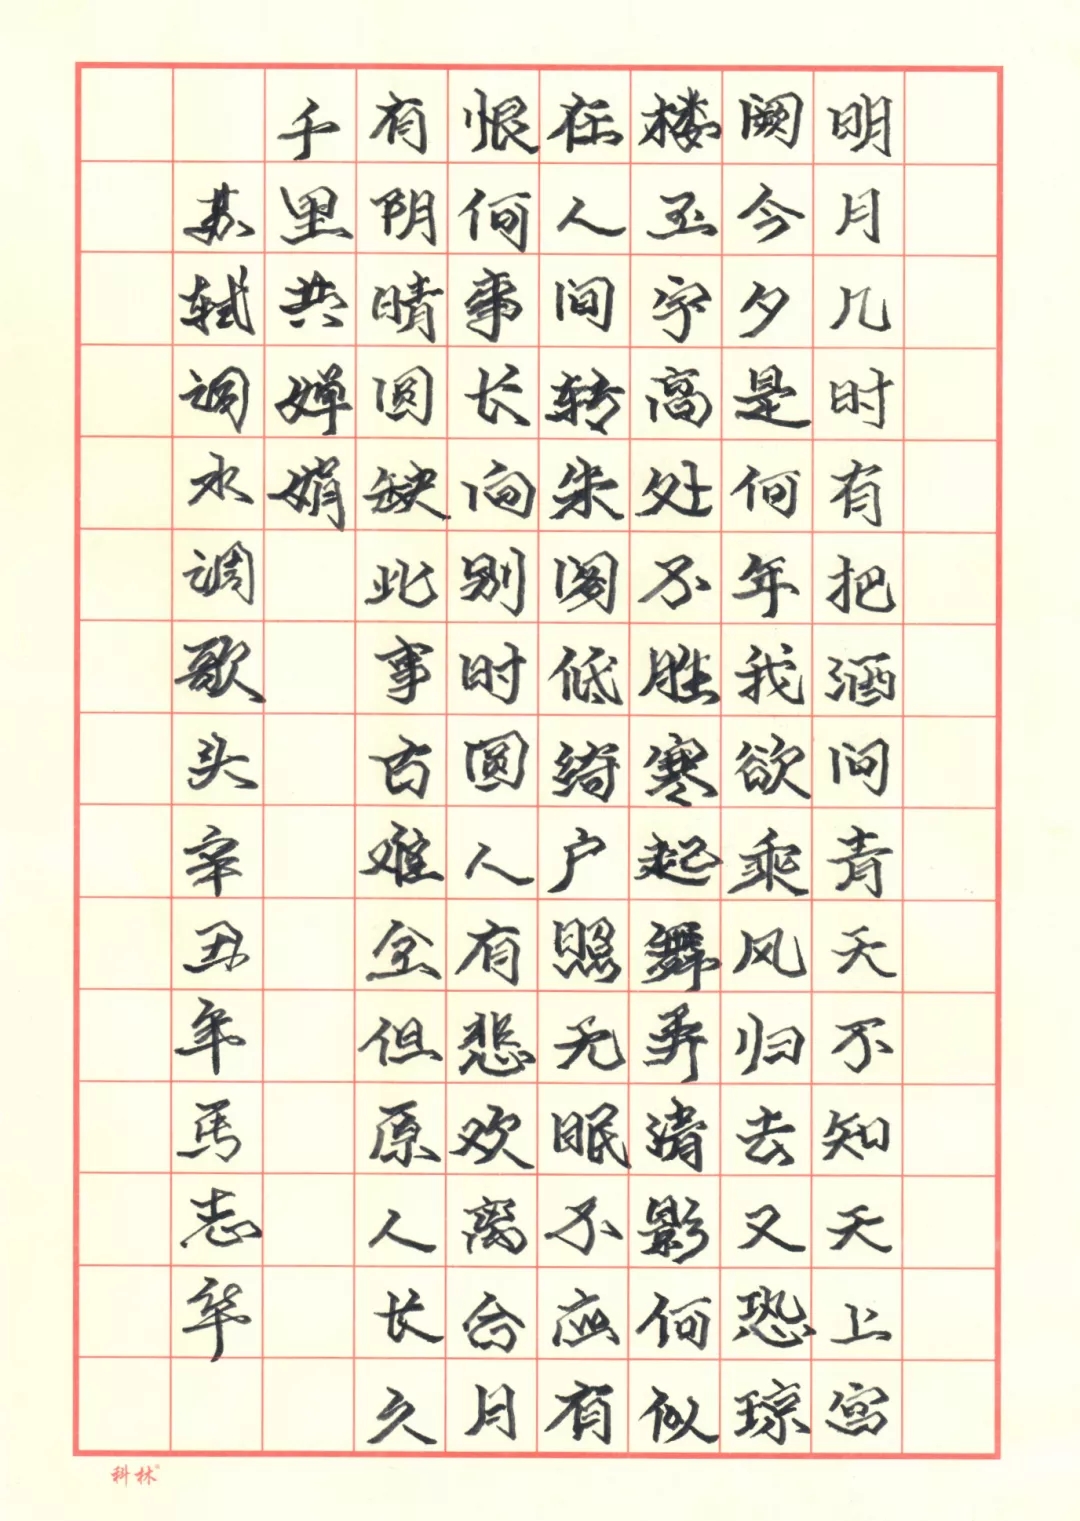 明月几时有把酒问青天不知天上宫
阙今夕是何年我欲乘风归去又恐琼
楼玉宇高处不胜寒起舞弄清影何似
在人间转朱阁低绮户照无眠不应有
恨何事长向别时圆人有悲欢离合月
有阴晴圆缺此事古难全但原人长久
千里共婵娟
苏轼词水调歌头辛丑年马志华
科林